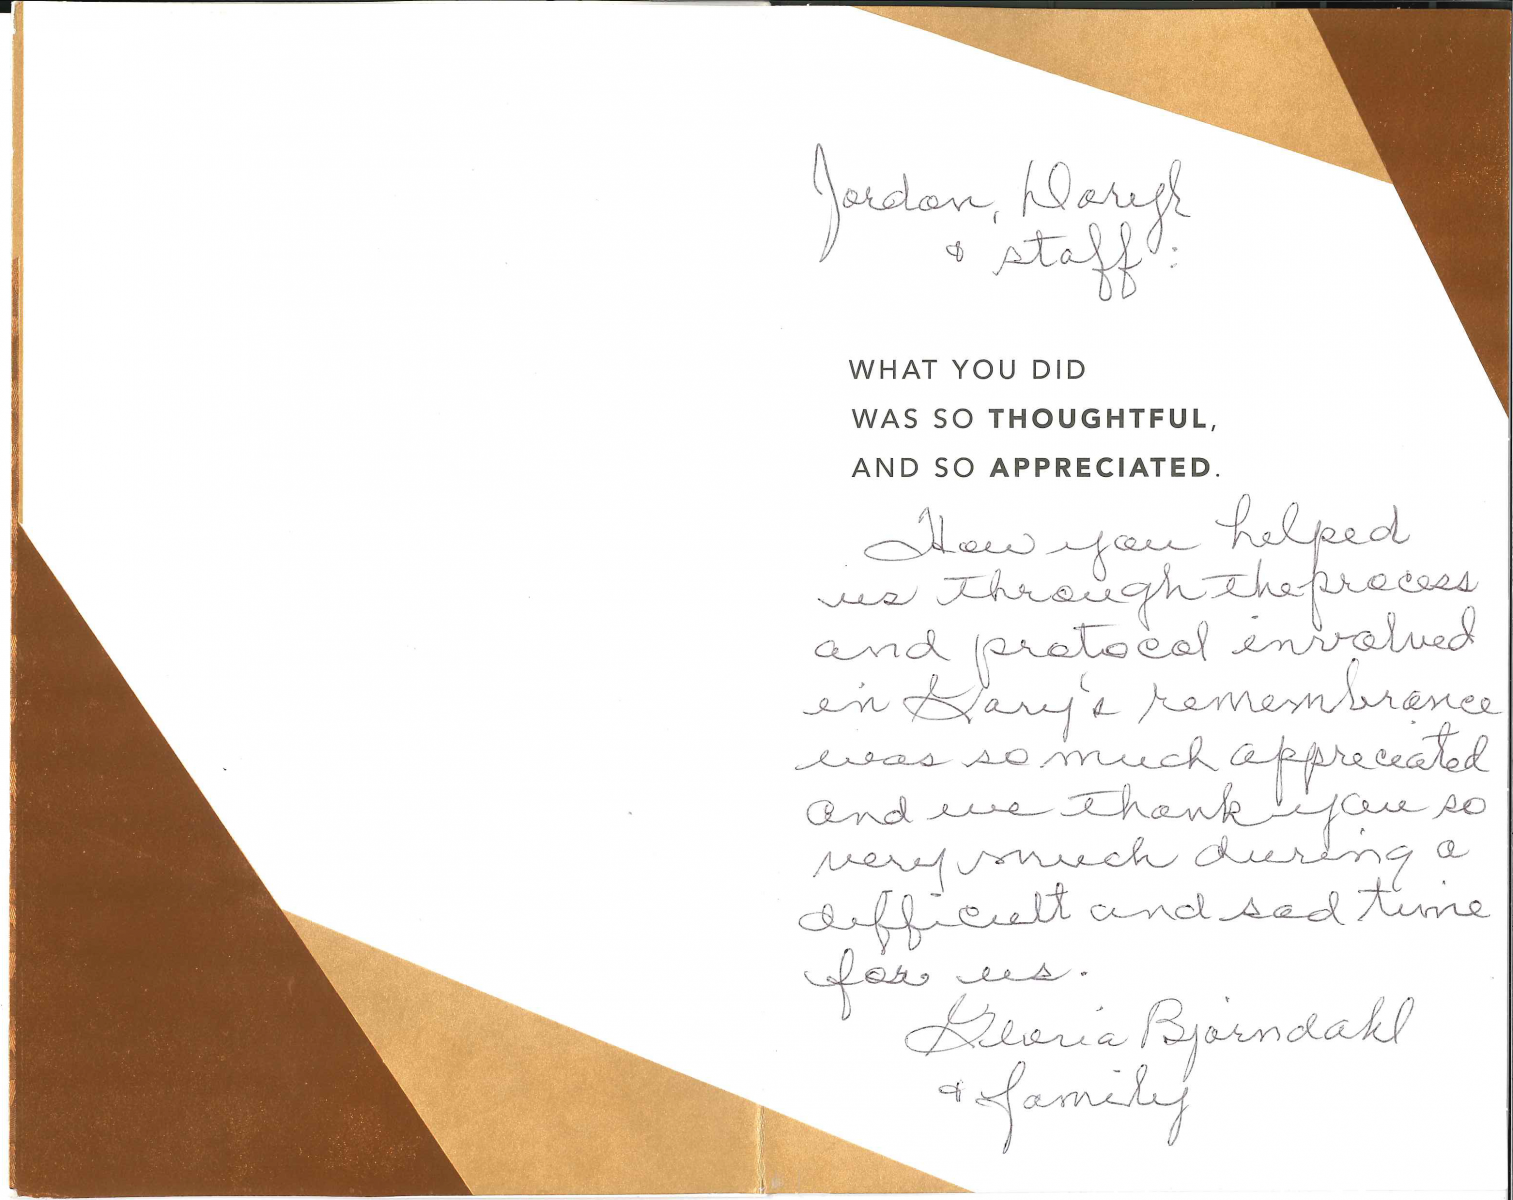 Jordan, Daryl
& staff:
WHAT YOU DID
WAS SO THOUGHTFUL,
AND SO APPRECIATED.
How you helped
us through the process
and protocol involved
in Gary's remembrance
was so much appreciated
and we thank you so
very much during a
difficult and sad time
for us.
Gloria Bjorndahl
& family